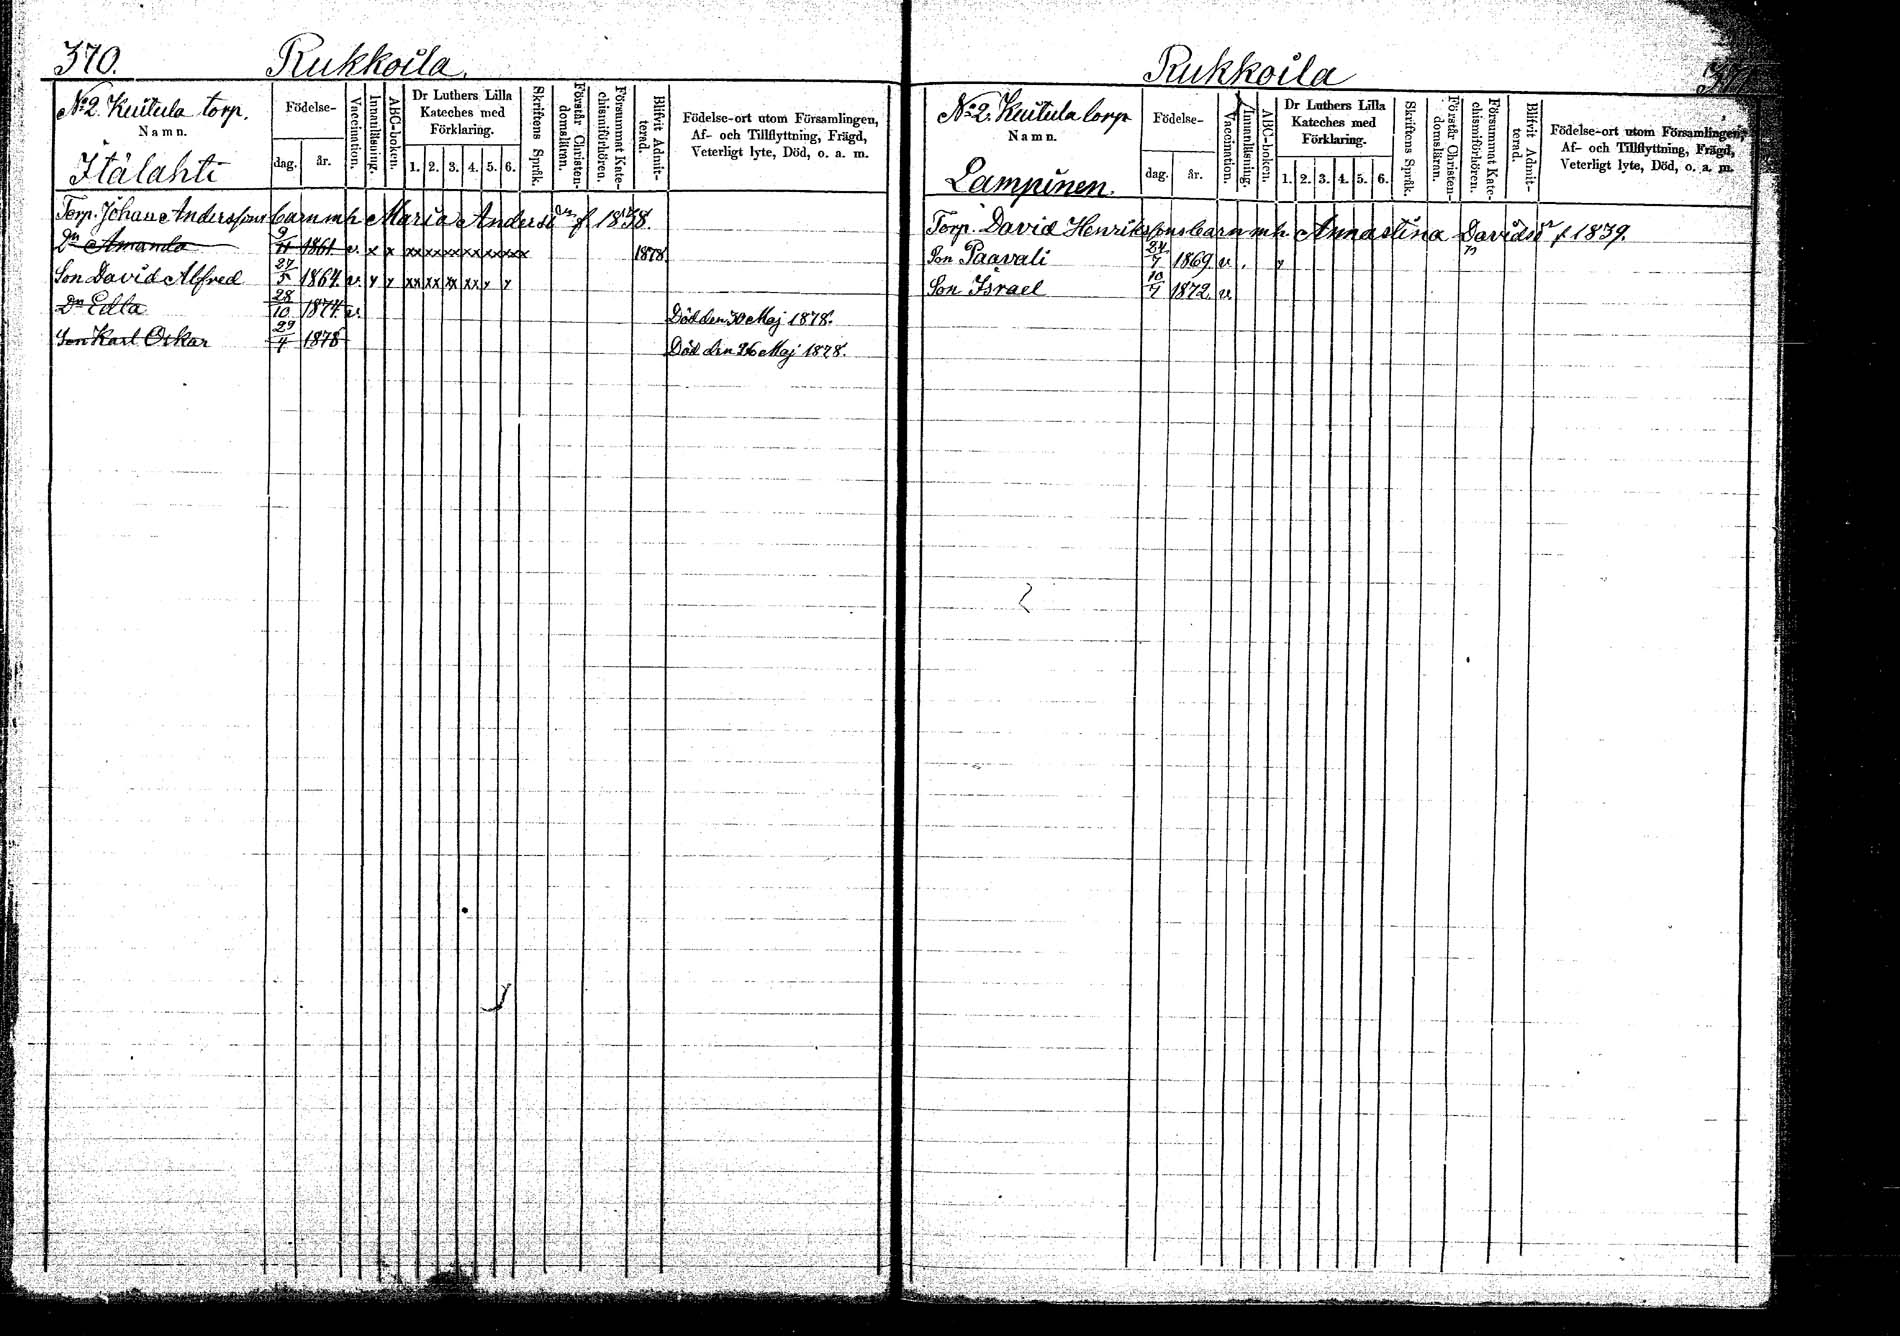 370.
Rukkoila.
No 2. Kuitula torp.
Namn.
Itälahti
Födelse-
dag.
år.
Vaccination.
Innanläsning.
ABC-boken.
Dr Luthers Lilla
Kateches med
Förklaring.
1. 2. 3. 4. 5. 6.
Skriftens Språk.
Förstår Christen-
domsläran.
Försummat Kate-
chismiförhören.
Blifvit Admit-
terad.
Födelse-ort utom Församlingen,
Af- och Tillflyttning, Frägd,
Veterligt lyte, Död, o. a. m.
Torp. Johan Anderssons barn m h Maria Andersd:r f 1838.
Dn Amanda 9/11 1861 v. x x xx xx xx xx xx xx 1878
Son David Alfred 27/5 1864 v. y y xx xx xx xx y y
Dn Edla 28/10 1874 v. Död den 30 Maj 1878.
Son Karl Oskar 29/4 1878 Död den 26 Maj 1878.
Rukkoila
371
No 2. Kuitula torp
Namn.
Lampinen.
Födelse-
dag.
år.
Vaccination.
Innanläsning.
ABC-boken.
Dr Luthers Lilla
Kateches med
Förklaring.
1. 2. 3. 4. 5. 6.
Skriftens Språk.
Förstår Christen-
domsläran.
Försummat Kate-
chismiförhören.
Blifvit Admit-
terad.
Födelse-ort utom Församlingen,
Af- och Tillflyttning, Frägd,
Veterligt lyte, Död, o. a. m.
Torp. David Henrikssons barn m h. Annastina Davidsdr f 1839.
Son Paavali 24/7 1869 v. . y
Son Israel 10/7 1872. v.